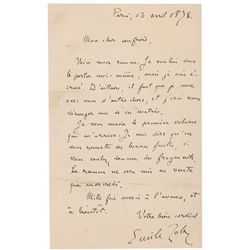 Paris, 13 avril 1878.
Mon cher confrère,
Voici mon roman. Je voulais vous
le porter moi-même, mais je suis
écrasé. D'ailleurs, il faut que je cause
avec vous d'autre chose, et j'irai vous
déranger un de ces matins.
Je vous envoie le premier volume
qui m'arrive. Je vais dire qu'on
vous remette des bonnes feuilles, si
vous voulez donner des fragments.
Le roman ne sera mis en vente
que mercredi.
Mille fois merci à l'avance, et
à bientôt.
Votre bien cordial
Emile Zola